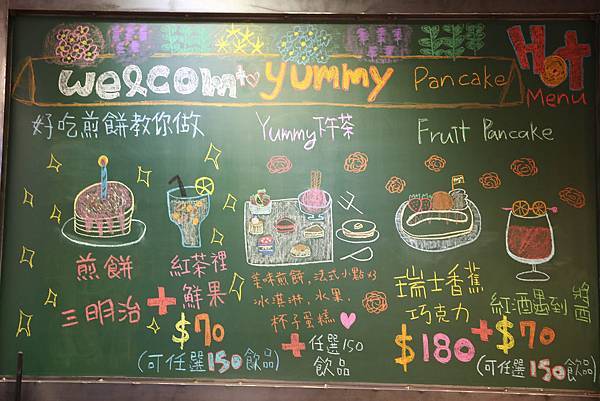 welcom to yummy Pancake
Hot
Menu
好吃煎餅教你做
煎餅
三明治
+
紅茶裡
鮮果
$70
(可任選150飲品)
Yummy下午茶
美味煎餅,法式小點x3
冰淇淋,水果,
杯子蛋糕
+
任選150
飲品
Fruit Pancake
瑞士香蕉
巧克力
$180
+
紅酒遇到
$70
(可任選150飲品)